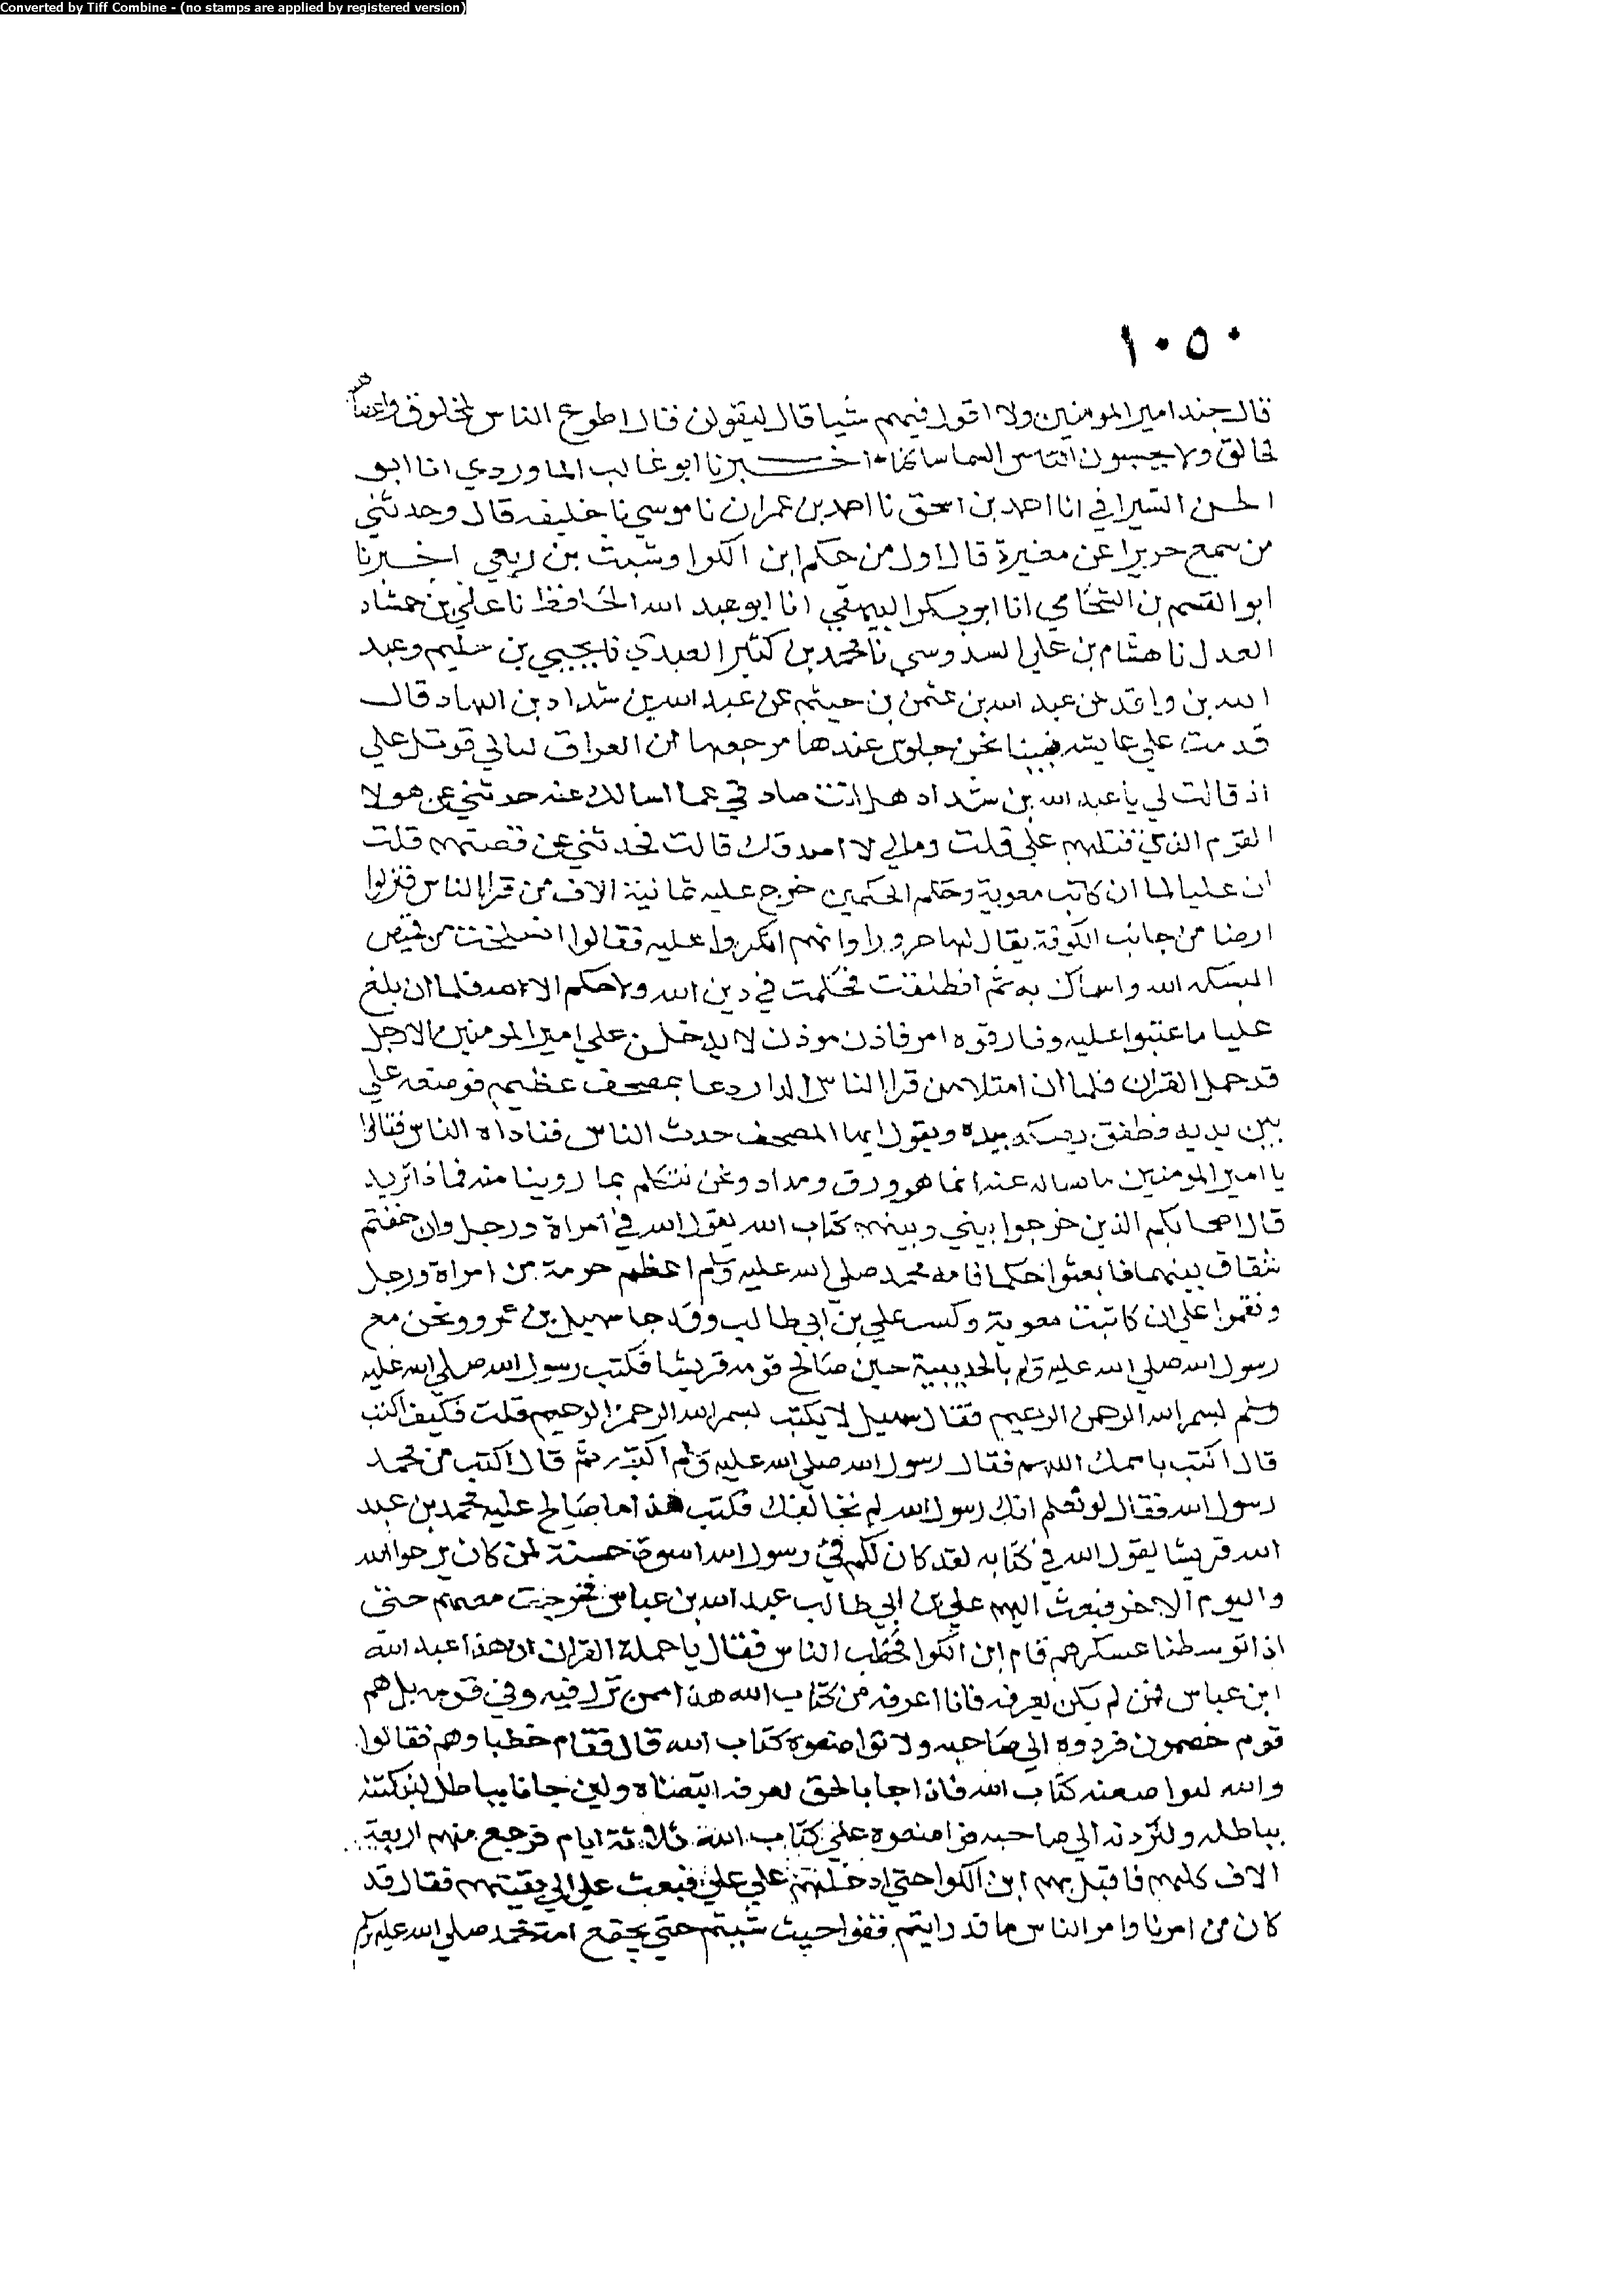 Converted by Tiff Combine - (no stamps are applied by registered version)
١٠٥٠
قال جند امير المومنين ولا اقول فيهم شيا قال ليقولن قال اطوع الناس لمخلوق واعصاهم
لخالق ولا يحسبون السما ساكنا اخبرنا ابو غالب الماوردي انا ابو
الحسن السيرافي انا احمد بن اسحق نا احمد بن عمران نا موسي نا خليفه قال وحدثني
من سمع جريرا عن مغيرة قال اول من حكم ابن الكوا وشبث بن ربعي اخبرنا
ابو القسم بن الشحامي انا ابو بكر البيهقي انا ابو عبد الله الحافظ نا علي بن حمشاد
العدل نا هشام بن علي السدوسي نا محمد بن كثير العبدي نا يحيي بن سليم وعبد
الله بن واقد عن عبد الله بن عثمن بن خيثم عن عبد الله بن شداد بن الهاد قال
قدمت علي عايشه فبينا نحن جلوس عندها مرجعها من العراق ليالي قوتل علي
اذ قالت لي يا عبد الله بن شداد هل انت صادقي عما اسالك عنه حدثني عن هولا
القوم الذين قتلهم علي قلت ومالي لا اصدقك قالت فحدثني عن قصتهم قلت
ان عليا لما ان كاتب معوية وحكم الحكمين خرج عليه ثمانية الاف من قرا الناس فنزلوا
ارضا من جانب الكوفة يقال لها حرورا وانهم انكروا عليه فقالوا انسلخت من قميص
البسكه الله واسماك به ثم انطلقت فحكمت في دين الله ولا حكم الا لله فلما ان بلغ
عليا ما عتبوا عليه وفارقوه امر فاذن موذن لا يدخلن علي امير المومنين الا رجل
قد حمل القران فلما ان امتلا من قرا الناس الدار دعا بمصحف عظيم فوضعه علي
بين يديه فطفق يصكه بيده ويقول ايها المصحف حدث الناس فناداه الناس فقالوا
يا امير المومنين ما تساله عنه انما هو ورق ومداد ونحن نتكلم بما روينا منه فماذا تريد
قال اصحابكم الذين خرجوا بيني وبينهم كتاب الله يقول الله في امراة ورجل وان خفتم
شقاق بينهما فابعثوا حكما فامه محمد صلي الله عليه وسلم اعظم حرمة من امراة ورجل
ونقموا علي ان كاتبت معوية وكتب علي بن ابي طالب وقد جا سهيل بن عمرو ونحن مع
رسول الله صلي الله عليه وسلم بالحديبية حين صالح قومه قريشا فكتب رسول الله صلي الله عليه
وسلم بسم الله الرحمن الرحيم فقال سهيل لا يكتب بسم الله الرحمن الرحيم قلت فكيف اكتب
قال اكتب باسمك اللهم فقال رسول الله صلي الله عليه وسلم اكتب ثم قال اكتب من محمد
رسول الله فقال لو نعلم انك رسول الله لم نخالفك فكتب هذا ما صالح عليه محمد بن عبد
الله قريشا يقول الله في كتابه لقد كان لكم في رسول الله اسوة حسنة لمن كان يرجوا الله
واليوم الاخر فبعث اليهم علي بن ابي طالب عبد الله بن عباس فخرجت معهم حتي
اذا توسطنا عسكرهم قام ابن الكوا فخطب الناس فقال يا حملة القران ان هذا عبد الله
ابن عباس فمن لم يكن يعرفه فانا اعرفه من كتاب الله هذا ممن نزل فيه وفي قومه بل هم
قوم خصمون فردوه الي صاحبه ولا تواضعوه كتاب الله قال فقام خطباوهم فقالوا
والله لنواضعنه كتاب الله فاذا جا بالحق نعرفه اتبعناه ولين جانا بباطل لنبكتنه
بباطله ولنردنه الي صاحبه فواضعوه علي كتاب الله ثلاثة ايام فرجع منهم اربعة
الاف كلهم فاقبل بهم ابن الكوا حتي ادخلهم علي علي فبعث علي الي بقيتهم فقال قد
كان من امرنا وامر الناس ما قد رايتم فقفوا حيث شيتم حتي تجتمع امة محمد صلي الله عليه وسلم